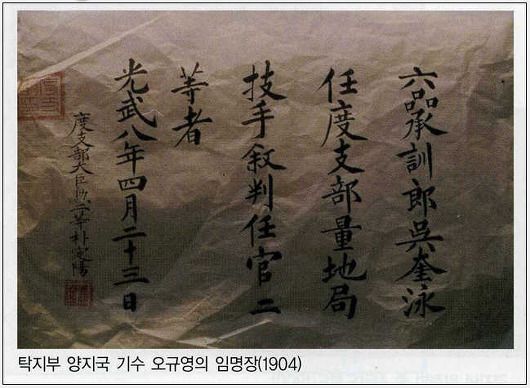 六品承訓郎吳奎泳
任度支部量地局
技手敍判任官二
等者
光武八年四月二十三日
度支部大臣勳一等朴定陽
탁지부 양지국 기수 오규영의 임명장(1904)